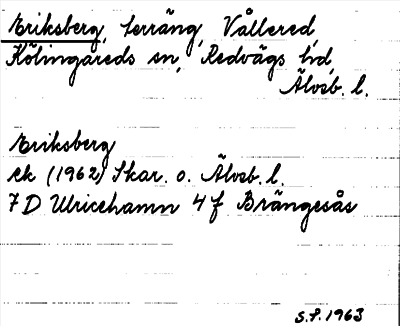 Eriksberg, terräng, Vållered,
Kölingareds sn, Redvägs hd,
Älvsb. l.
Eriksberg
ek (1962) Skar. o. Älvsb. l.
7 D Ulricehamn 4 f Brängesås
S.F. 1963